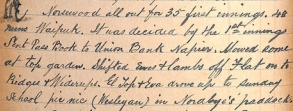 Norsewood all out for 35 first innings. 48
runs Waipuk. It was decided by the 1st innings
Sent Pass Book to Union Bank Napier. Mowed some
at top garden. Shifted Ewes & lambs off Flat on to
Ridges & Widerups. G Top & Eva drove up to Sunday
School pic nic (Wesleyan) in Nordbys paddock.